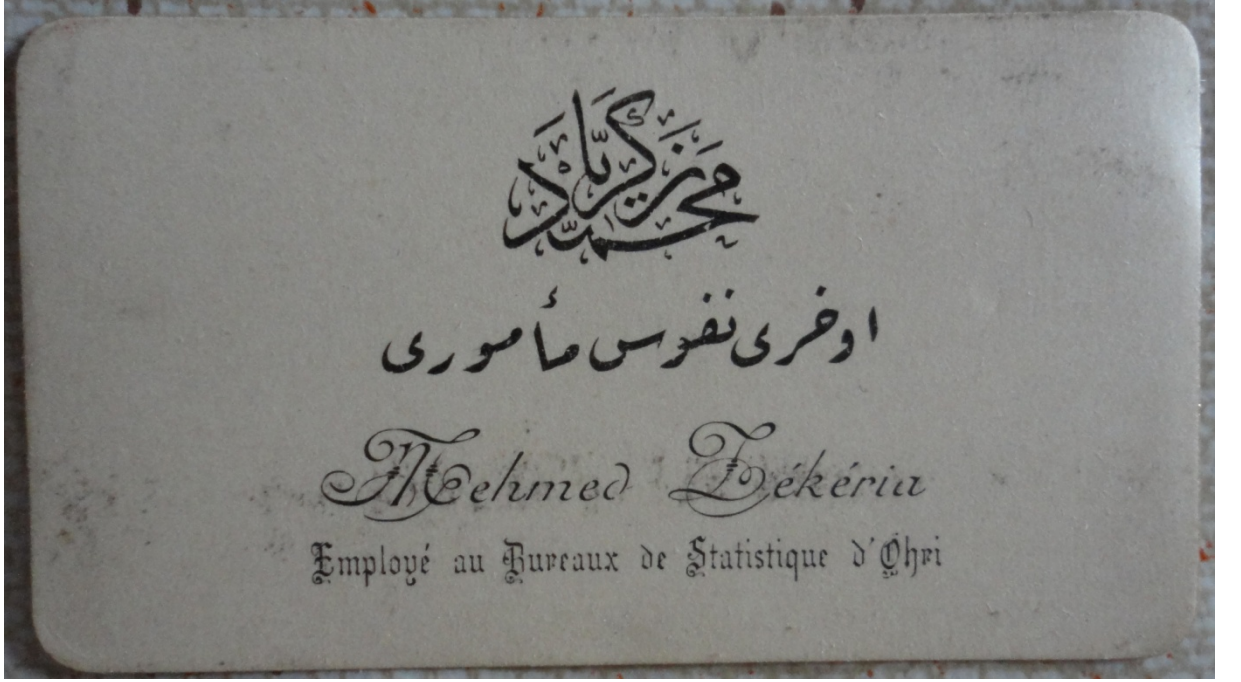 محمد زكريا
اوخرى نفوس مأمورى
Mehmed Zékéria
Employé au Bureaux de Statistique d'Ohri